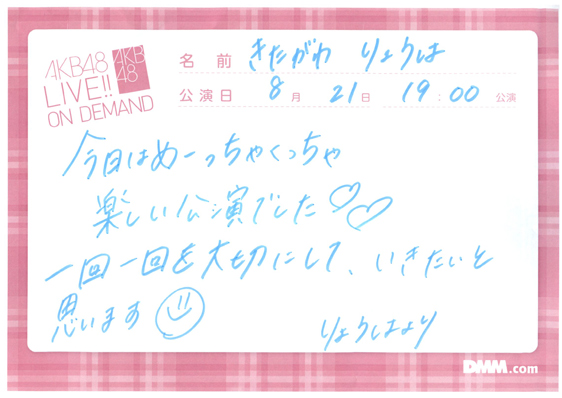 AKB48
LIVE!!
ON DEMAND
AKB
48
名前 きたがわ りょうは
公演日 8月 21日 19:00 公演
今日はめーっちゃくっちゃ
楽しい公演でした♡♡
一回一回を大切にして、いきたいと
思います
りょうはより
DMM.com